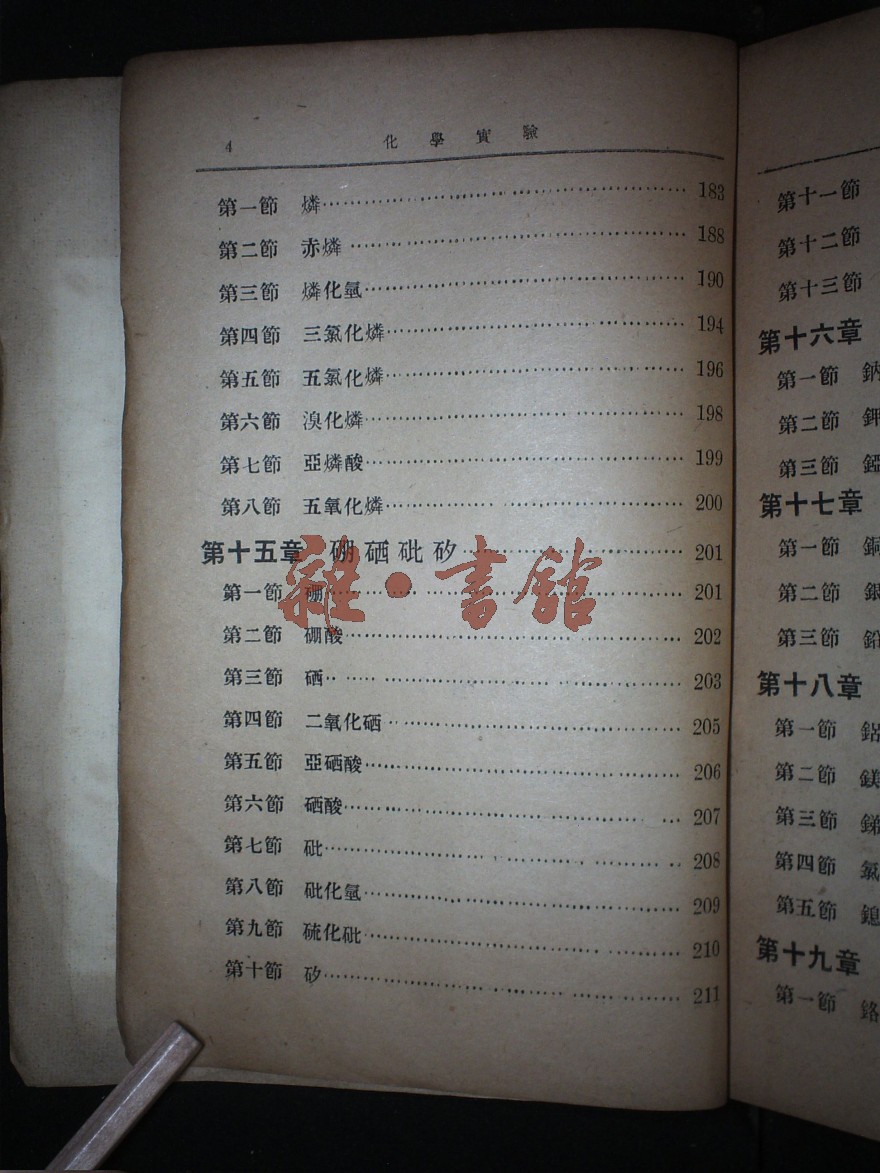 4 化學實驗
第一節 燐 183
第二節 赤燐 188
第三節 燐化氫 190
第四節 三氯化燐 194
第五節 五氯化燐 196
第六節 溴化燐 198
第七節 亞燐酸 199
第八節 五氧化燐 200
第十五章 硼硒砒矽 201
第一節 硼 201
第二節 硼酸 202
第三節 硒 203
第四節 二氧化硒 205
第五節 亞硒酸 206
第六節 硒酸 207
第七節 砒 208
第八節 砒化氫 209
第九節 硫化砒 210
第十節 矽 211
雜·書館
第十一節
第十二節
第十三節
第十六章
第一節 鈉
第二節 鉀
第三節
第十七章
第一節 銅
第二節 銀
第三節 鉛
第十八章
第一節 鋁
第二節 鎂
第三節 銻
第四節 氯
第五節
第十九章
第一節 鉻